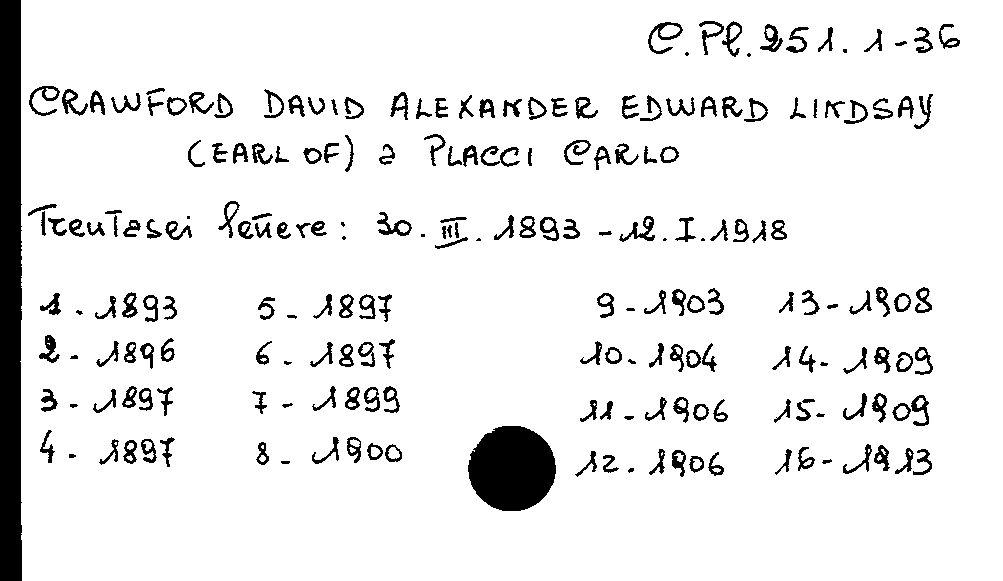 C.Pl.251.1-36
CRAWFORD DAVID ALEXANDER EDWARD LINDSAY
(EARL OF) a PLACCI CARLO
Trentasei lettere: 30.III.1893 - 12.I.1918
1 - 1893 5 - 1897 9 - 1903 13 - 1908
2 - 1896 6 - 1897 10 - 1904 14 - 1909
3 - 1897 7 - 1899 11 - 1906 15 - 1909
4 - 1897 8 - 1900 12 - 1906 16 - 1913